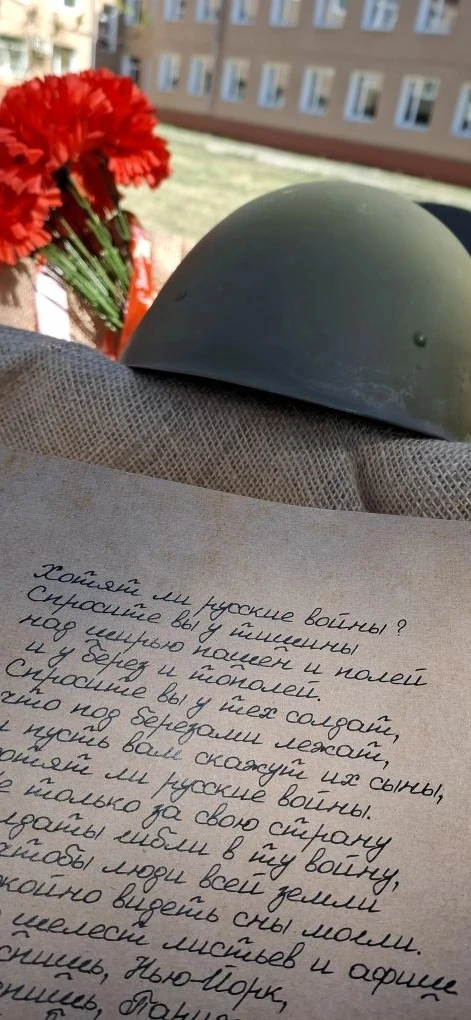 Хотят ли русские войны?
Спросите вы у тишины
над ширью пашен и полей
и у берез и тополей.
Спросите вы у тех солдат,
что под березами лежат,
и пусть вам скажут их сыны,
отят ли русские войны.
е только за свою страну
лдаты гибли в ту войну,
чтобы люди всей земли
койно видеть сны могли.
шелест листьев и афиш
снишь, Нью-Йорк,
нишь,